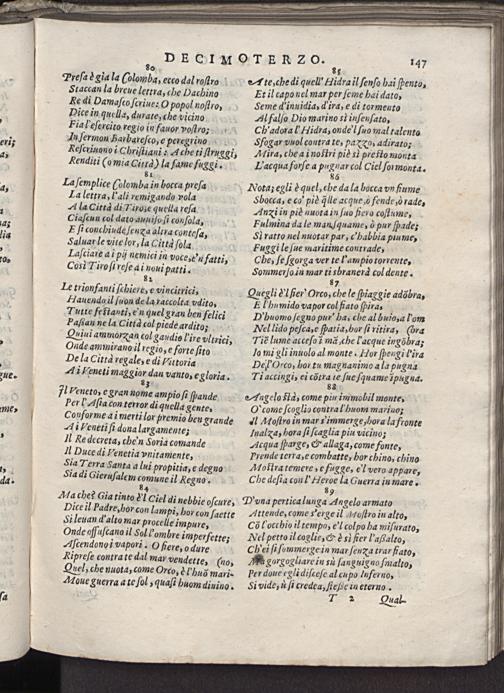 DECIMOTERZO. 147
80
Presa è gia la Colomba, ecco dal rostro
Staccan la breue lettra, che Dachino
Re di Damasco scriue: O popol nostro,
Dice in quella, durate, che vicino
Fia l'esercito regio in fauor vostro;
In sermon Barbaresco, e peregrino
Rescriuono i Christiani: A che ti struggi,
Renditi (o mia Città) la fame fuggi.
81
La semplice Colomba in bocca presa
La lettra, l'ali remigando vola
A la Città di Tiro, e quella resa
Ciascun col dato auuiso si consola,
E si conchiude senza altra contesa,
Saluar le vite lor, la Città sola
Lasciare a i pij nemici in voce, e'n fatti,
Così Tiro si rese a i noui patti.
82
Le trionfanti schiere, e vincitrici,
Hauendo il suon de la raccolta vdito,
Tutte festanti, e'n quel gran ben felici
Passan ne la Città col piede ardito;
Quiui ammorzan col gaudio l'ire vltrici,
Onde ammirano il regio, e forte sito
De la Città regale, e di Vittoria
A i Veneti maggior dan vanto, e gloria.
83
Il Veneto, e gran nome ampio si spande
Per l'Asia con terror di quella gente,
Conforme a i merti lor premio ben grande
A i Veneti si dona largamente;
Il Re decreta, che'n Soria comande
Il Duce di Venetia vnitamente,
Sia Terra Santa a lui propitia, e degno
Sia di Gierusalem comune il Regno.
84
Ma che? Gia tinto è'l Ciel di nebbie oscure,
Dice il Padre, hor con lampi, hor con saette
Si leuan d'alto mar procelle impure,
Onde offuscano il Sol l'ombre imperfette;
Ascendono i vapori. O fiere, o dure
Riprese contra te dal mar vendette, (no,
Quel, che nuota, come Orco, è l'huō mari-
Moue guerra a te sol, quasi huom diuino.
85
A te, che di quell'Hidra il senso hai spento,
Et il capo nel mar per seme hai dato,
Seme d'inuidia, d'ira, e di tormento
Al falso Dio marino sì insensato,
Ch'adora l'Hidra, onde'l suo mal talento
Sfogar vuol contra te, pazzo, adirato;
Mira, che a i nostri piè si presto monta
L'acqua forse a pugnar col Ciel sormonta.
86
Nota; egli è quel, che da la bocca vn fiume
Sbocca, e co' piè q̃lle acque, ò fende, ò rade,
Anzi in piè nuota in suo fiero costume,
Fulmina da le man, squame, ò pur spade;
Sì ratto nel nuotar par, c'habbia piume,
Fuggi le sue maritime contrade,
Che, se sgorga ver te l'ampio torrente,
Sommerso in mar ti sbranerà col dente.
87
Quegli è'l fier'Orco, che le spiaggie adōbra,
E l'humido vapor col fiato spira,
D'huomo segno pur'ha, che al buio, a l'om
Nel lido pesca, e spatia, hor si ritira, (bra
Tiē lume acceso ī mā, che l'acque ingōbra;
Io mi gli inuolo al monte. Hor spengi l'ira
De l'Orco, hor tu magnanimo a la pugna
Ti accingi, ei cōtra te sue squame īpugna.
88
Angelo stà, come piu immobil monte,
O' come scoglio contra l'huom marino;
Il Mostro in mar s'immerge, hora la fronte
Inalza, hora si scaglia piu vicino;
Acqua sparge, & allaga, come fonte,
Prende terra, e combatte, hor chino, chino
Mostra temere, e fugge, e'l vero appare,
Che desia con l'Heroe la Guerra in mare.
89
D'vna pertica lunga Angelo armato
Attende, come s'erge il Mostro in alto,
Cō l'occhio il tempo, e'l colpo ha misurato,
Nel petto il coglie, & è sì fier l'assalto,
Ch'ei si sommerge in mar senza trar fiato,
Ma gorgogliare in sù sanguigno smalto,
Per doue egli discese al cupo Inferno,
Si vide, ù si credea, stesse in eterno.
T 2 Qual-